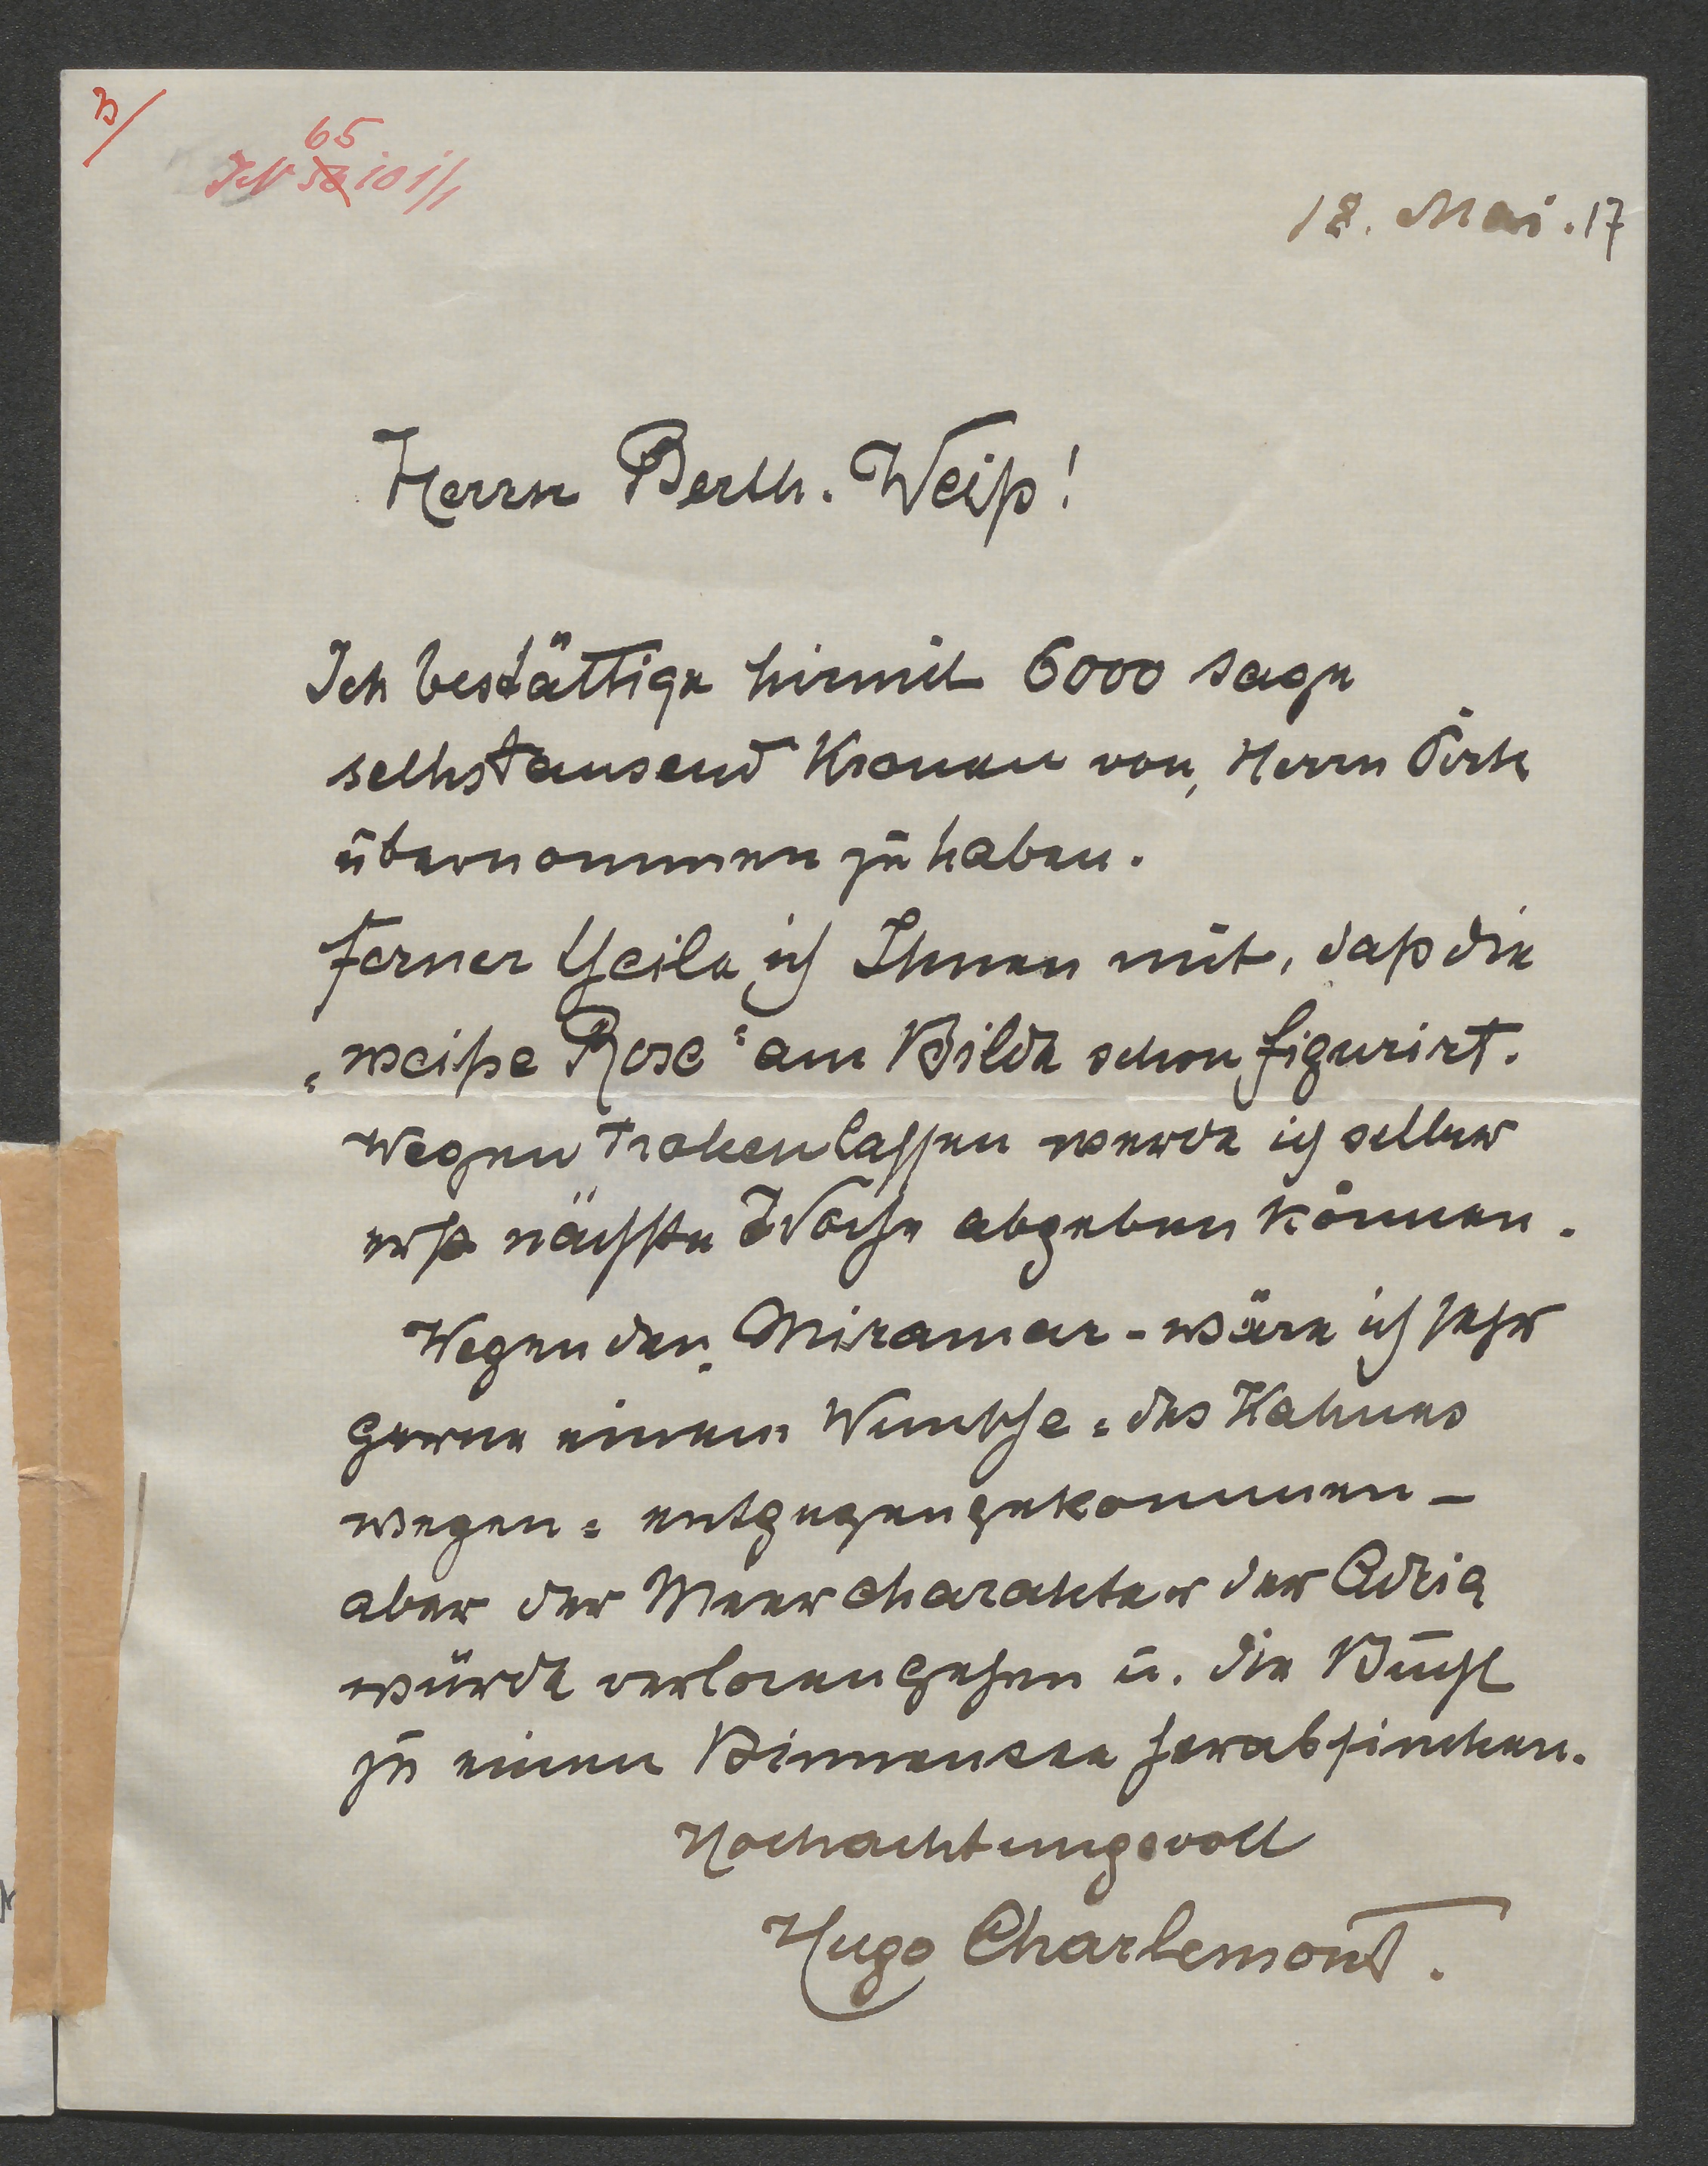 3/
65
JN 56101/1
18. Mai. 17
Herrn Berth. Weiß!
Ich bestättige hiermit 6000 sage
sechstausend Kronen von Herrn Pirk
übernommen zu haben.
Ferner theile ich Ihnen mit, daß die
„weiße Rose“ am Bilde schon figurirt.
Wegen Trokenlassen werde ich selber
erst nächste Woche abgeben können.
Wegen den Miramar - wäre ich sehr
gerne einem Wunsche = des Kahnes
wegen = entgegengekommen -
aber der Meercharakter der Adria
würde verlorengehen u. die Bucht
zu einem Binnensee herabsinken.
Hochachtungsvoll
Hugo Charlemont.